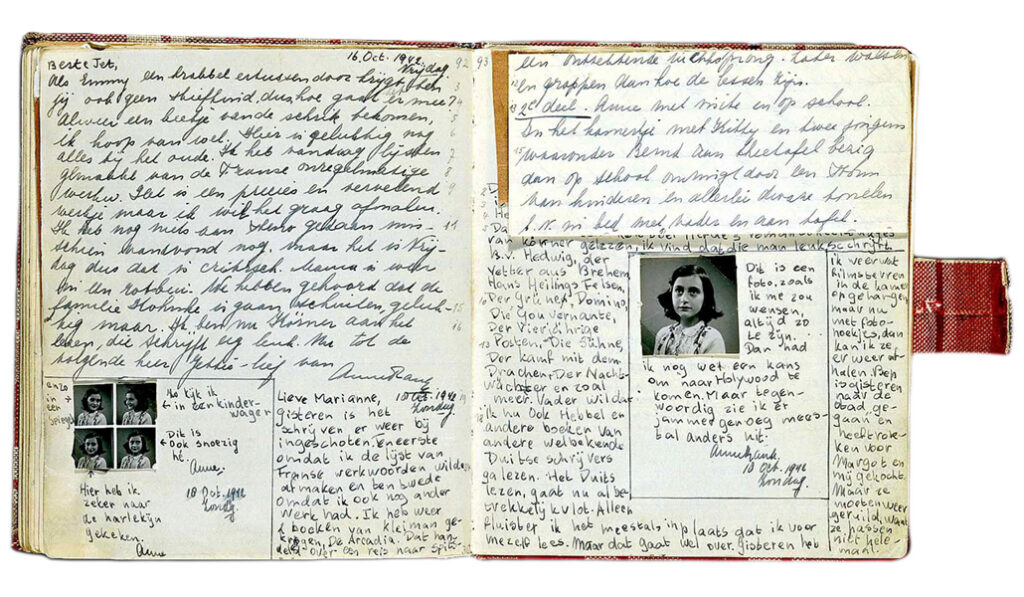 16 Oct. 1942
Vrijdag.
92
Beste Jet,
Als Emmy een krabbel ertussendoor krijgt ben
jij ook geen stiefkind, dus hoe gaat er mee?
Alweer een beetje van de schrik bekomen,
ik hoop van wel. Hier is gelukkig nog
alles bij het oude. Ik heb vandaag lijsten
gemaakt van de Franse onregelmatige
werkw. Het is een precies en vervelend
werkje maar ik wil het graag afmaken.
Ik heb nog niets aan Steno gedaan mis-
schien vanavond nog, maar het is Vrij-
dag dus dat is critisch. Mama is weer
in een
We hebben gehoord dat de
familie is gaan schuilen, geluk-
kig maar. Ik ben nu Körner aan het
lezen, die schrijft erg leuk. Nu tot de
volgende keer Jettie-lief van
Anne Frank
enzo
in een
spiegel
Zo kijk ik
in een kinder-
wager
Dit is
ook snoezig
hè.
Anne.
Hier heb ik
zeker naar
de harlekijn
gekeken.
Anne
18 Oct. 1942
Zondag.
18 Oct. 1942
Zondag.
Lieve Marianne,
Gisteren is het
schrijven er weer bij
ingeschoten. eneerste
omdat ik de lijst van
Franse werkwoorden wilde
afmaken en ten twede
omdat ik ook nog ander
werk had. Ik heb weer
2 boeken van Kleiman ge-
kregen, De Arcadia. Dat han-
deld over een reis naar Spitz-
93
een ontzettende luchtsprong. Later walsen
en grappen aan hoe de tessen zijn.
2e deel. Anne met
en op school.
In het kamertje met Kitty en twee jongens
waaronder Bernd aan theetafel bezig
dan op school omringd door een drom
van kinderen en allerlei dwaze tonelen
b.v. in bed met vader en aan tafel.
van Körner gelezen, ik vind dat die man leuk schrijft.
B.v. Hedwig, der
Vetter aus Bremen
Hans Heilings Felsen,
Der Grüne Domino,
Die Gouvernante,
Der Vierjährige
Posten, Die Sühne,
Der Kampf mit dem
Drachen, Der Nacht-
wächter en zoal
meer. Vader wil dat
ik nu ook Hebbel en
andere boeken van
andere welbekende
Duitse schrijvers
ga lezen. Het Duits
lezen, gaat nu al be-
trekkelijk vlot. Alleen
fluister ik het meestal, inplaats dat ik voor
mezelf lees. Maar dat gaat wel over. gisteren heb
Dit is een
foto, zoals
ik me zou
wensen,
altijd zo
te zijn.
Dan had
ik nog wel een kans
om naar Holywood te
komen. Maar tegen-
woordig zie ik er
jammer genoeg mees-
tal anders uit.
Anne Frank.
18 Oct. 1942
Zondag.
ik veer wat
filmsterren
in de kamer
opgehangen
maar nu
met foto-
hoekjes, dan
kan ik ze
er weer af-
halen. Bep
is gisteren
naar de
stad, ge-
gaan en
heeft rok-
ken voor
Margot en
mij gekocht.
Maar ze
moeten weer
geruild, want
ze passen
niet hele-
maal.